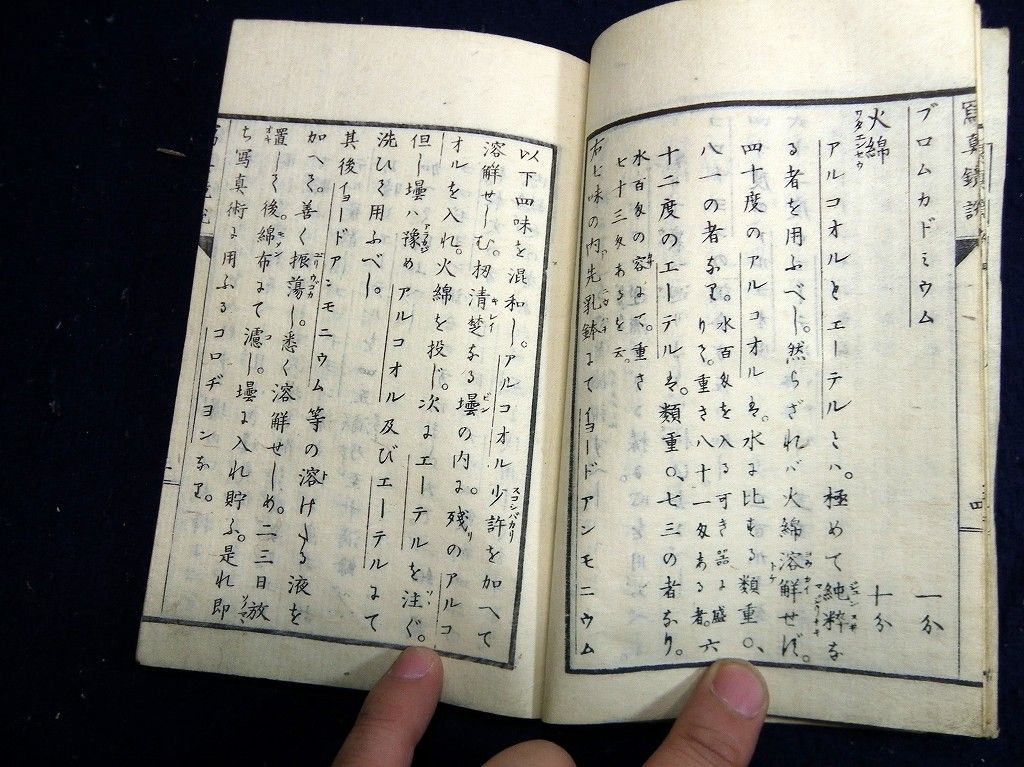 ブロムカドミウム 一分
火綿 十分
ワタエンセウ
アルコオルとエーテルミハ。極めて純粋な
る者を用ふべし。然らざれバ火綿溶解せず。
四十度のアルコオルは。水に比する類重〇、
八一の者なりとる。重さ八十一匁ある者。六
十二度のエーテルは。類重〇、七三の者なり。
水百匁の容にて。重さ
七十三匁あるを云。
右七味の内先乳鉢にてイヨードアンモニウム
以下四味を混和し。アルコオル少許を加へて
溶解せしむ。扨清楚なる壜の内に残りのアルコ
オルを入れ。火綿を投じ。次にエーテルを注ぐ。
但し壜ハ豫めアルコオル及びエーテルにて
洗ひて用ふべし。
其後イヨードアンモニウム等の溶けたる液を
加へて。善く振蕩し。悉く溶解せしめ。二三日放
置して後。綿布にて濾し。壜に入れ貯ふ。是れ即
ち写真術に用ふるコロヂヨンなり。